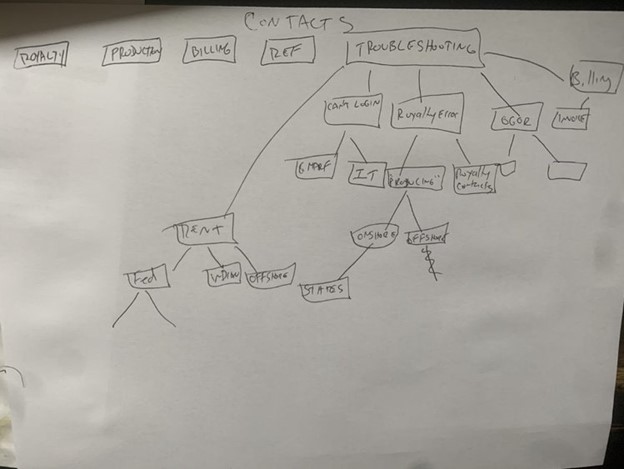 CONTACTS
ROYALTY
PRODUCTION
BILLING
REF
TROUBLESHOOTING
Billing
CAN'T LOGIN
Royalty Error
OGOR
INVOICE
IT
"PRODUCING"
Royalty Contacts
RENT
ONSHORE
OFFSHORE
Fed
INDIAN
OFFSHORE
STATES